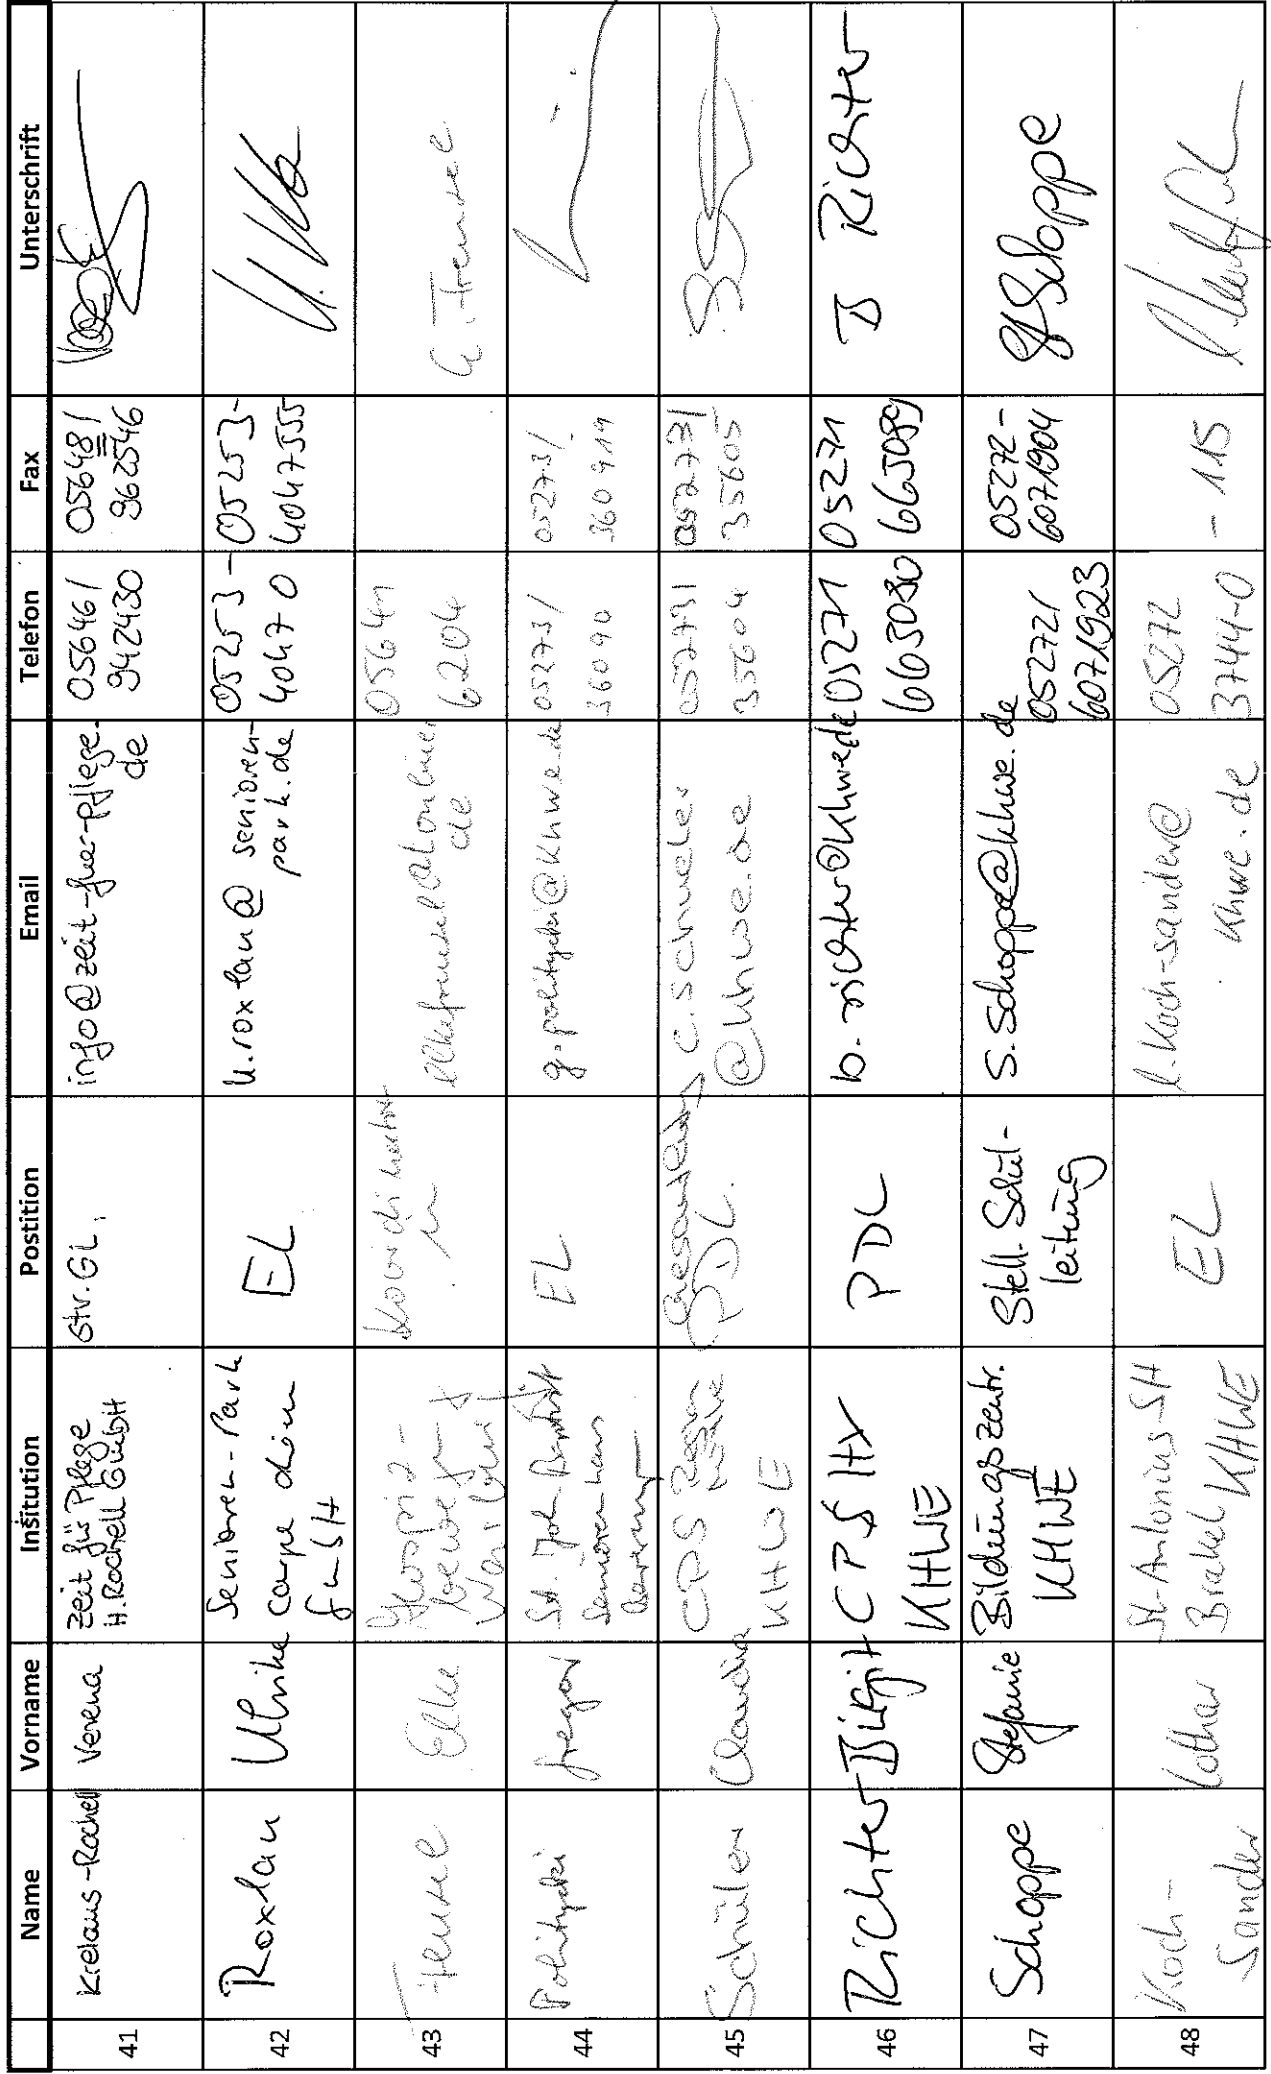 Name Vorname Inšitution Postition Email Telefon Fax Unterschrift
41 Krelaus-Rochell Verena Zeit für Pflege
H. Rochell GmbH
Stv. GL. info@zeit-fuer-pflege.
de
05646/
942430
05648/
962546
42 Roxlau Ulrike Senioren-Park
carpe diem
GmbH
EL u.roxlau@senioren-
park.de
05253-
40470
05253-
4047555
43 Elke Hospiz-
Koordinator
in
de
05641
6204
44 Gregor St. Joh. Baptist
Seniorenhaus
EL g.politycki@khwe.de
05273/
36090
05273/
360919
45 Schüler Claudia CPS Region
KHWE
PDL c.schueler
@khwe.de
05273/
35604
05273/
35605
46 Richter Birgit CPS HX
KHWE
PDL b.richter@khwe.de
05271
663080
05271
663089
B Richter
47 Schoppe Stefanie Bildungszentr.
KHWE
Stell. Schul-
leitung
s.schoppe@khwe.de
05272/
6071923
05272-
6071904
S Schoppe
48 Koch-
Sander
Lothar St. Antonius SH
Brakel KHWE
EL l.koch-sander@
khwe.de
05272
3744-0
- 115